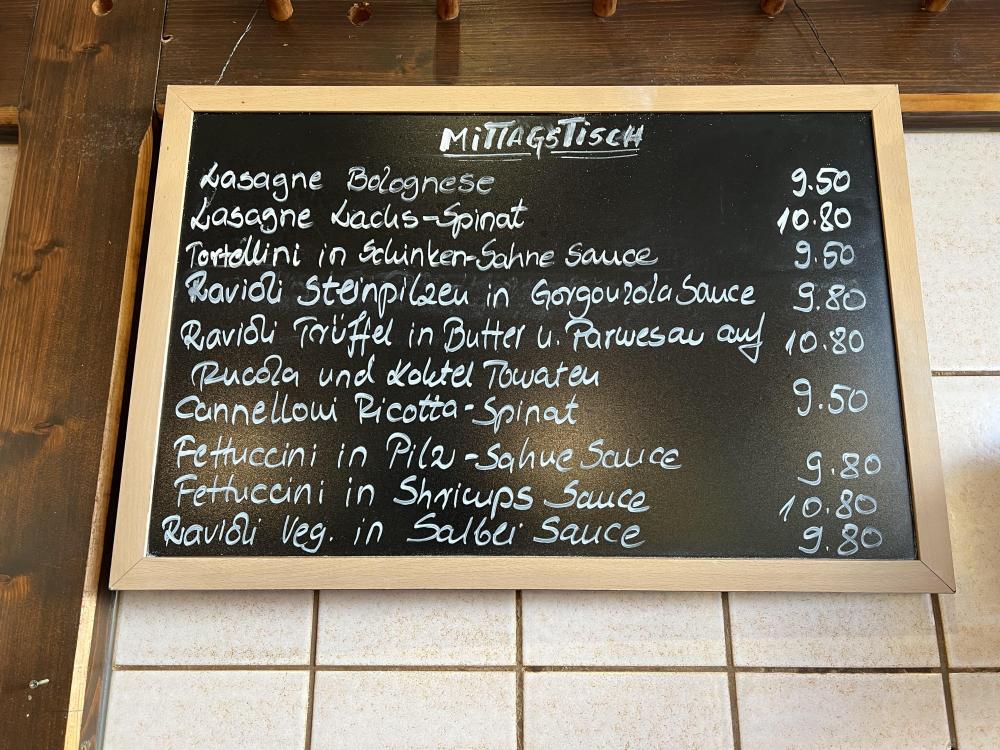 MiTTAGSTiSCH
Lasagne Bolognese 9.50
Lasagne Lachs-Spinat 10.80
Tortellini in Schinken-Sahne Sauce 9.50
Ravioli Steinpilzen in Gorgonzola Sauce 9.80
Ravioli Trüffel in Butter u. Parmesan auf 10.80
Rucola und Koktel Tomaten
Cannelloni Ricotta-Spinat 9.50
Fettuccini in Pilz-Sahne Sauce 9.80
Fettuccini in Shrimps Sauce 10.80
Ravioli Veg. in Salbei Sauce 9.80